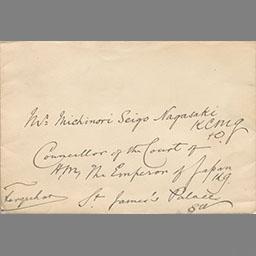 Mr. Michinori Seigo Nagasaki
KCMG
Councillor of the Court of
H.M. The Emperor of Japan
St James's Palace
Farquhar